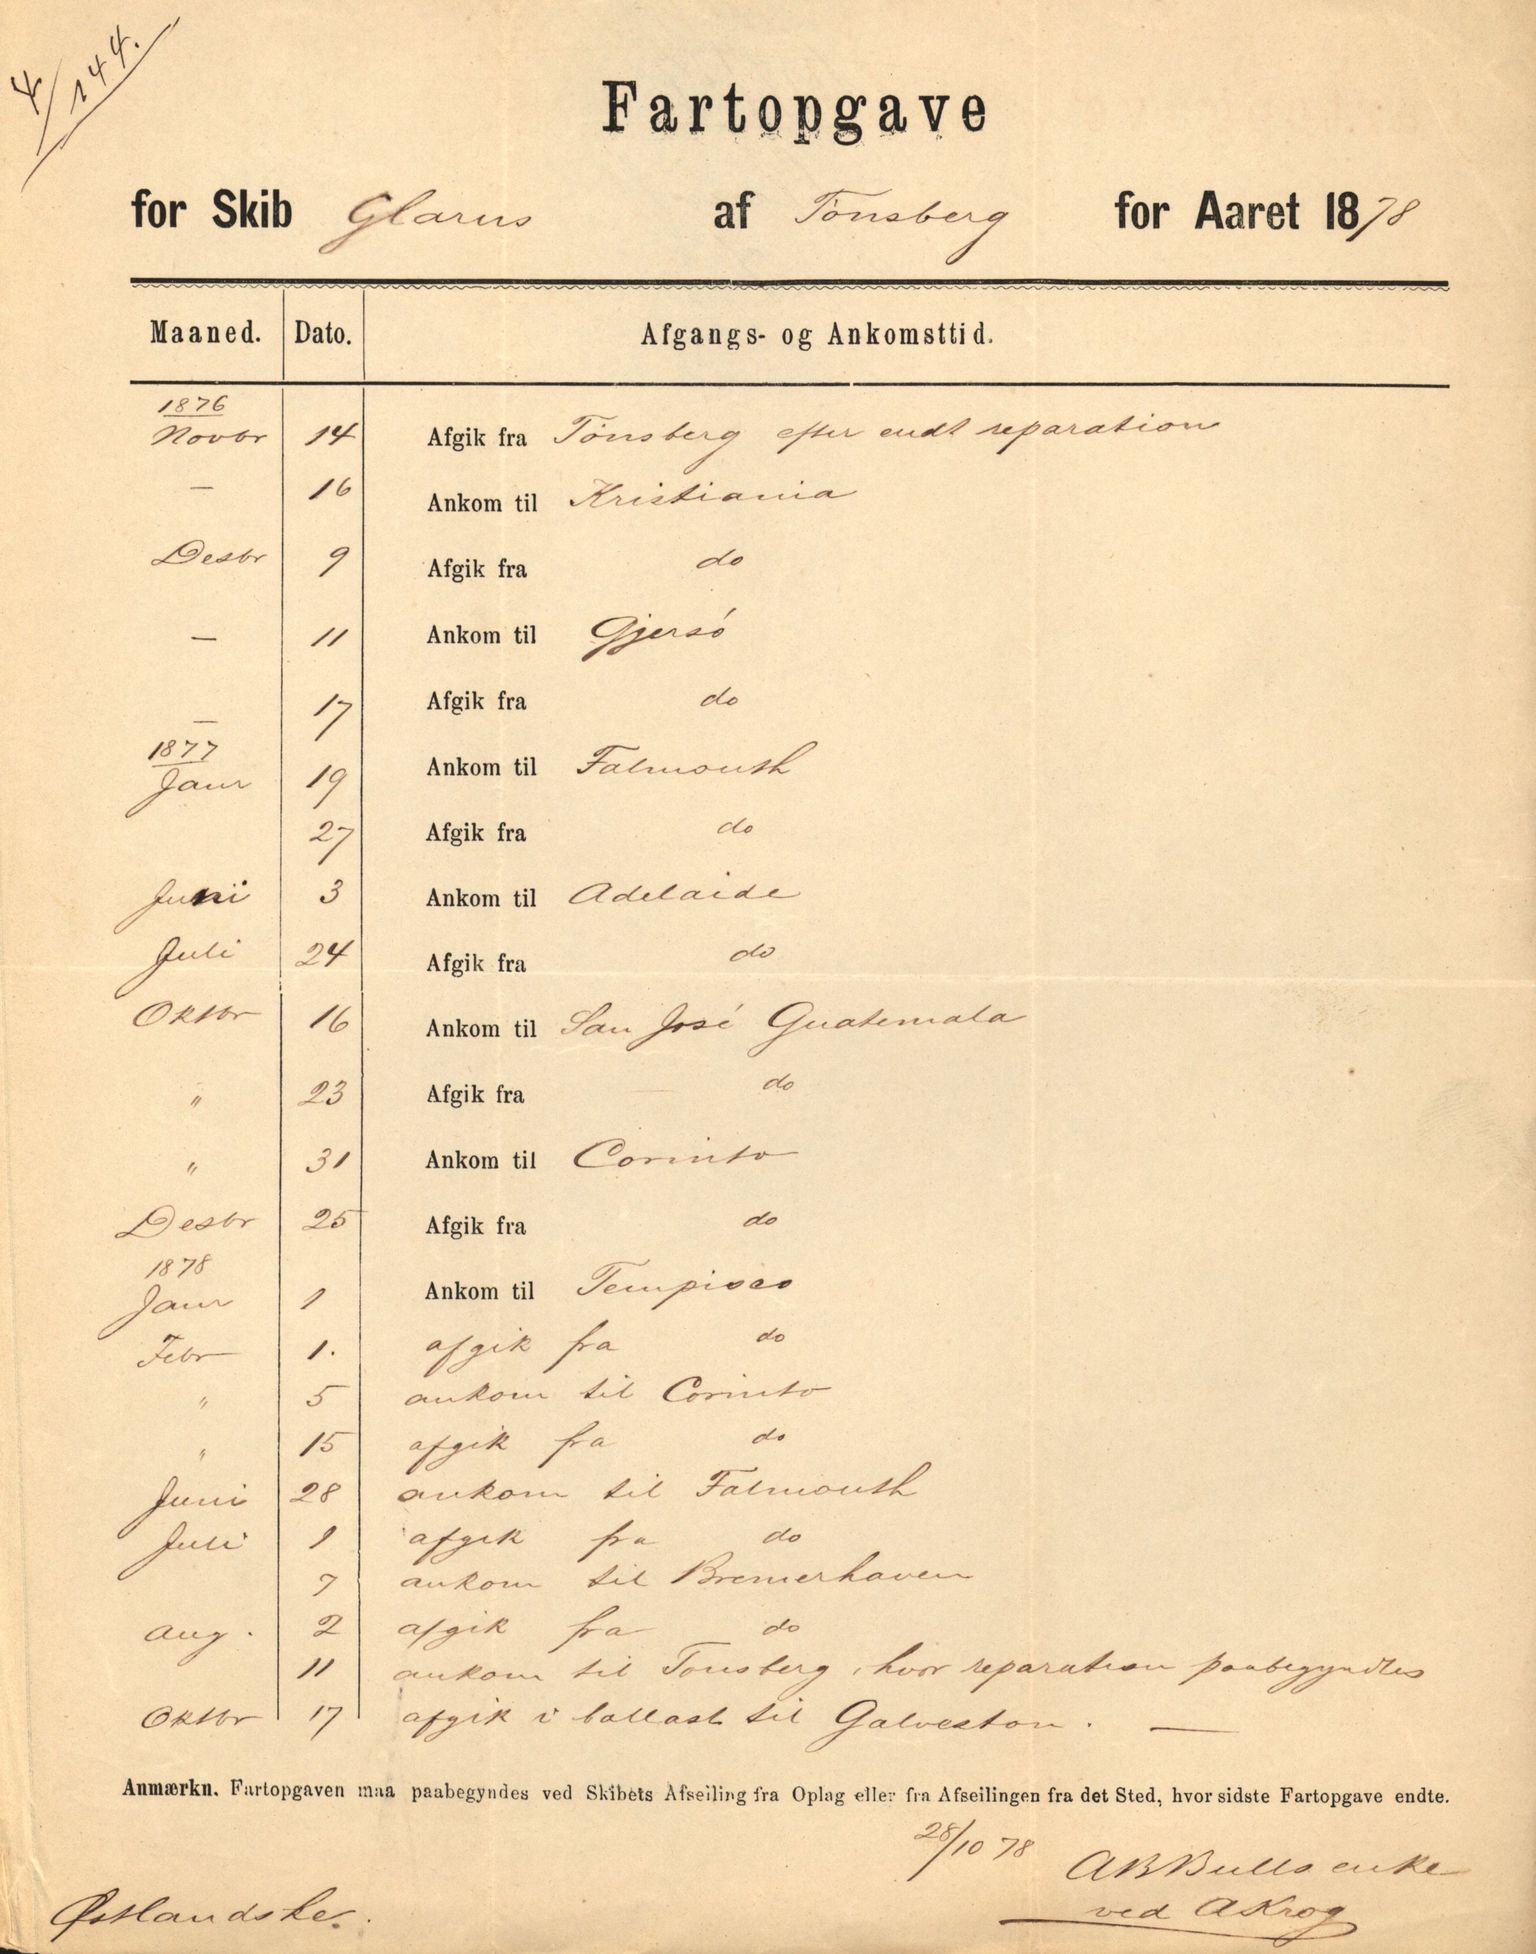 4/144.
Fartopgave
for Skib Glarus af Tönsberg for Aaret 1878
Maaned. Dato. Afgangs- og Ankomsttid.
1876
Novbr 14 Afgik fra Tönsberg efter endt reparation
— 16 Ankom til Kristiania
Desbr 9 Afgik fra do
— 11 Ankom til Gjersö
— 17 Afgik fra do
1877
Janr 19 Ankom til Falmouth
27 Afgik fra do
Juni 3 Ankom til Adelaide
Juli 24 Afgik fra do
Oktbr 16 Ankom til San José Guatemala
" 23 Afgik fra do
" 31 Ankom til Corinto
Desbr 25 Afgik fra do
1878
Janr 1 Ankom til Tempisco
Febr 1. afgik fra do
" 5 ankom til Corinto
" 15 afgik fra do
Juni 28 ankom til Falmouth
Juli 1 afgik fra do
7 ankom til Bremerhaven
Aug. 2 afgik fra do
11 ankom til Tonsberg, hvor reparation paabegyndtes
Oktbr 17 afgik i ballast til Galveston. —
Anmærkn. Fartopgaven maa paabegyndes ved Skibets Afseiling fra Oplag eller fra Afseilingen fra det Sted, hvor sidste Fartopgave endte.
28/10 78
A B Bulls enke
ved A Krog
Østlandske.